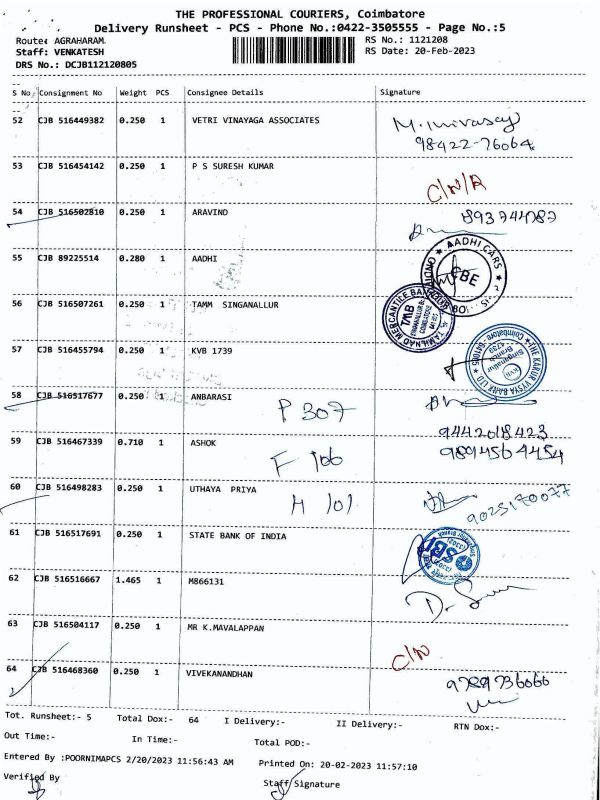 THE PROFESSIONAL COURIERS, Coimbatore
Delivery Runsheet - PCS - Phone No.:0422-3505555 - Page No.:5
Route: AGRAHARAM
RS No.: 1121208
Staff: VENKATESH
RS Date: 20-Feb-2023
DRS No.: DCJB112120805
S No Consignment No Weight PCS Consignee Details Signature
52 CJB 516449382 0.250 1 VETRI VINAYAGA ASSOCIATES
98422-76064
53 CJB 516454142 0.250 1 P S SURESH KUMAR
C/N/R
54 CJB 516502810 0.250 1 ARAVIND
55 CJB 89225514 0.280 1 AADHI
AADHI CARS
56 CJB 516507261 0.250 1 TAMM SINGANALLUR
TAMILNAD MERCANTILE BANK
TMB
57 CJB 516455794 0.250 1 KVB 1739
THE KARUR VYSYA BANK LTD
Coimbatore - 641005
Singanallur
Branch
KVB
58 CJB 516517677 0.250 1 ANBARASI
P 307
9442018423
59 CJB 516467339 0.710 1 ASHOK
F 106
9894564454
60 CJB 516498283 0.250 1 UTHAYA PRIYA
H 101
9025170077
61 CJB 516517691 0.250 1 STATE BANK OF INDIA
SBI
62 CJB 516516667 1.465 1 M866131
63 CJB 516504117 0.250 1 MR K.MAVALAPPAN
C/N
64 CJB 516468360 0.250 1 VIVEKANANDHAN
9789736066
Tot. Runsheet:- 5 Total Dox:- 64 I Delivery:- II Delivery:- RTN Dox:-
Out Time:- In Time:- Total POD:-
Entered By :POORNIMAPCS 2/20/2023 11:56:43 AM Printed On: 20-02-2023 11:57:10
Verified By Staff Signature